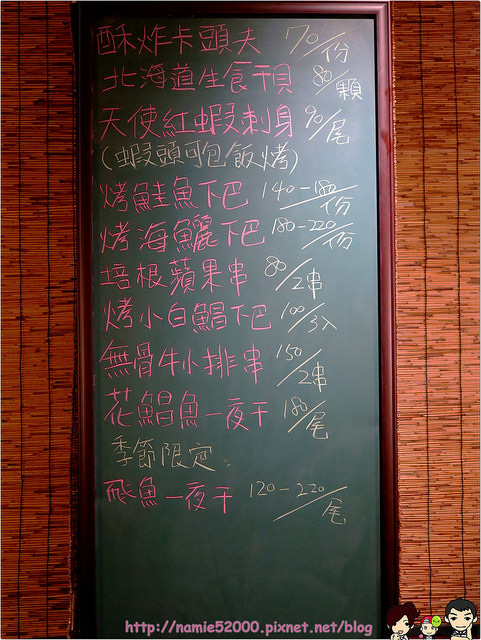 酥炸卡頭夫 70/份
北海道生食干貝 80/顆
天使紅蝦刺身 90/尾
(蝦頭可包飯烤)
烤鮭魚下巴 140-180/份
烤海鱺下巴 180-220/份
培根蘋果串 80/2串
烤小白鯧下巴 100/3入
無骨牛小排串 150/2串
花鯧魚一夜干 180/尾
季節限定:
飛魚一夜干 120-220/尾
http://namie52000.pixnet.net/blog